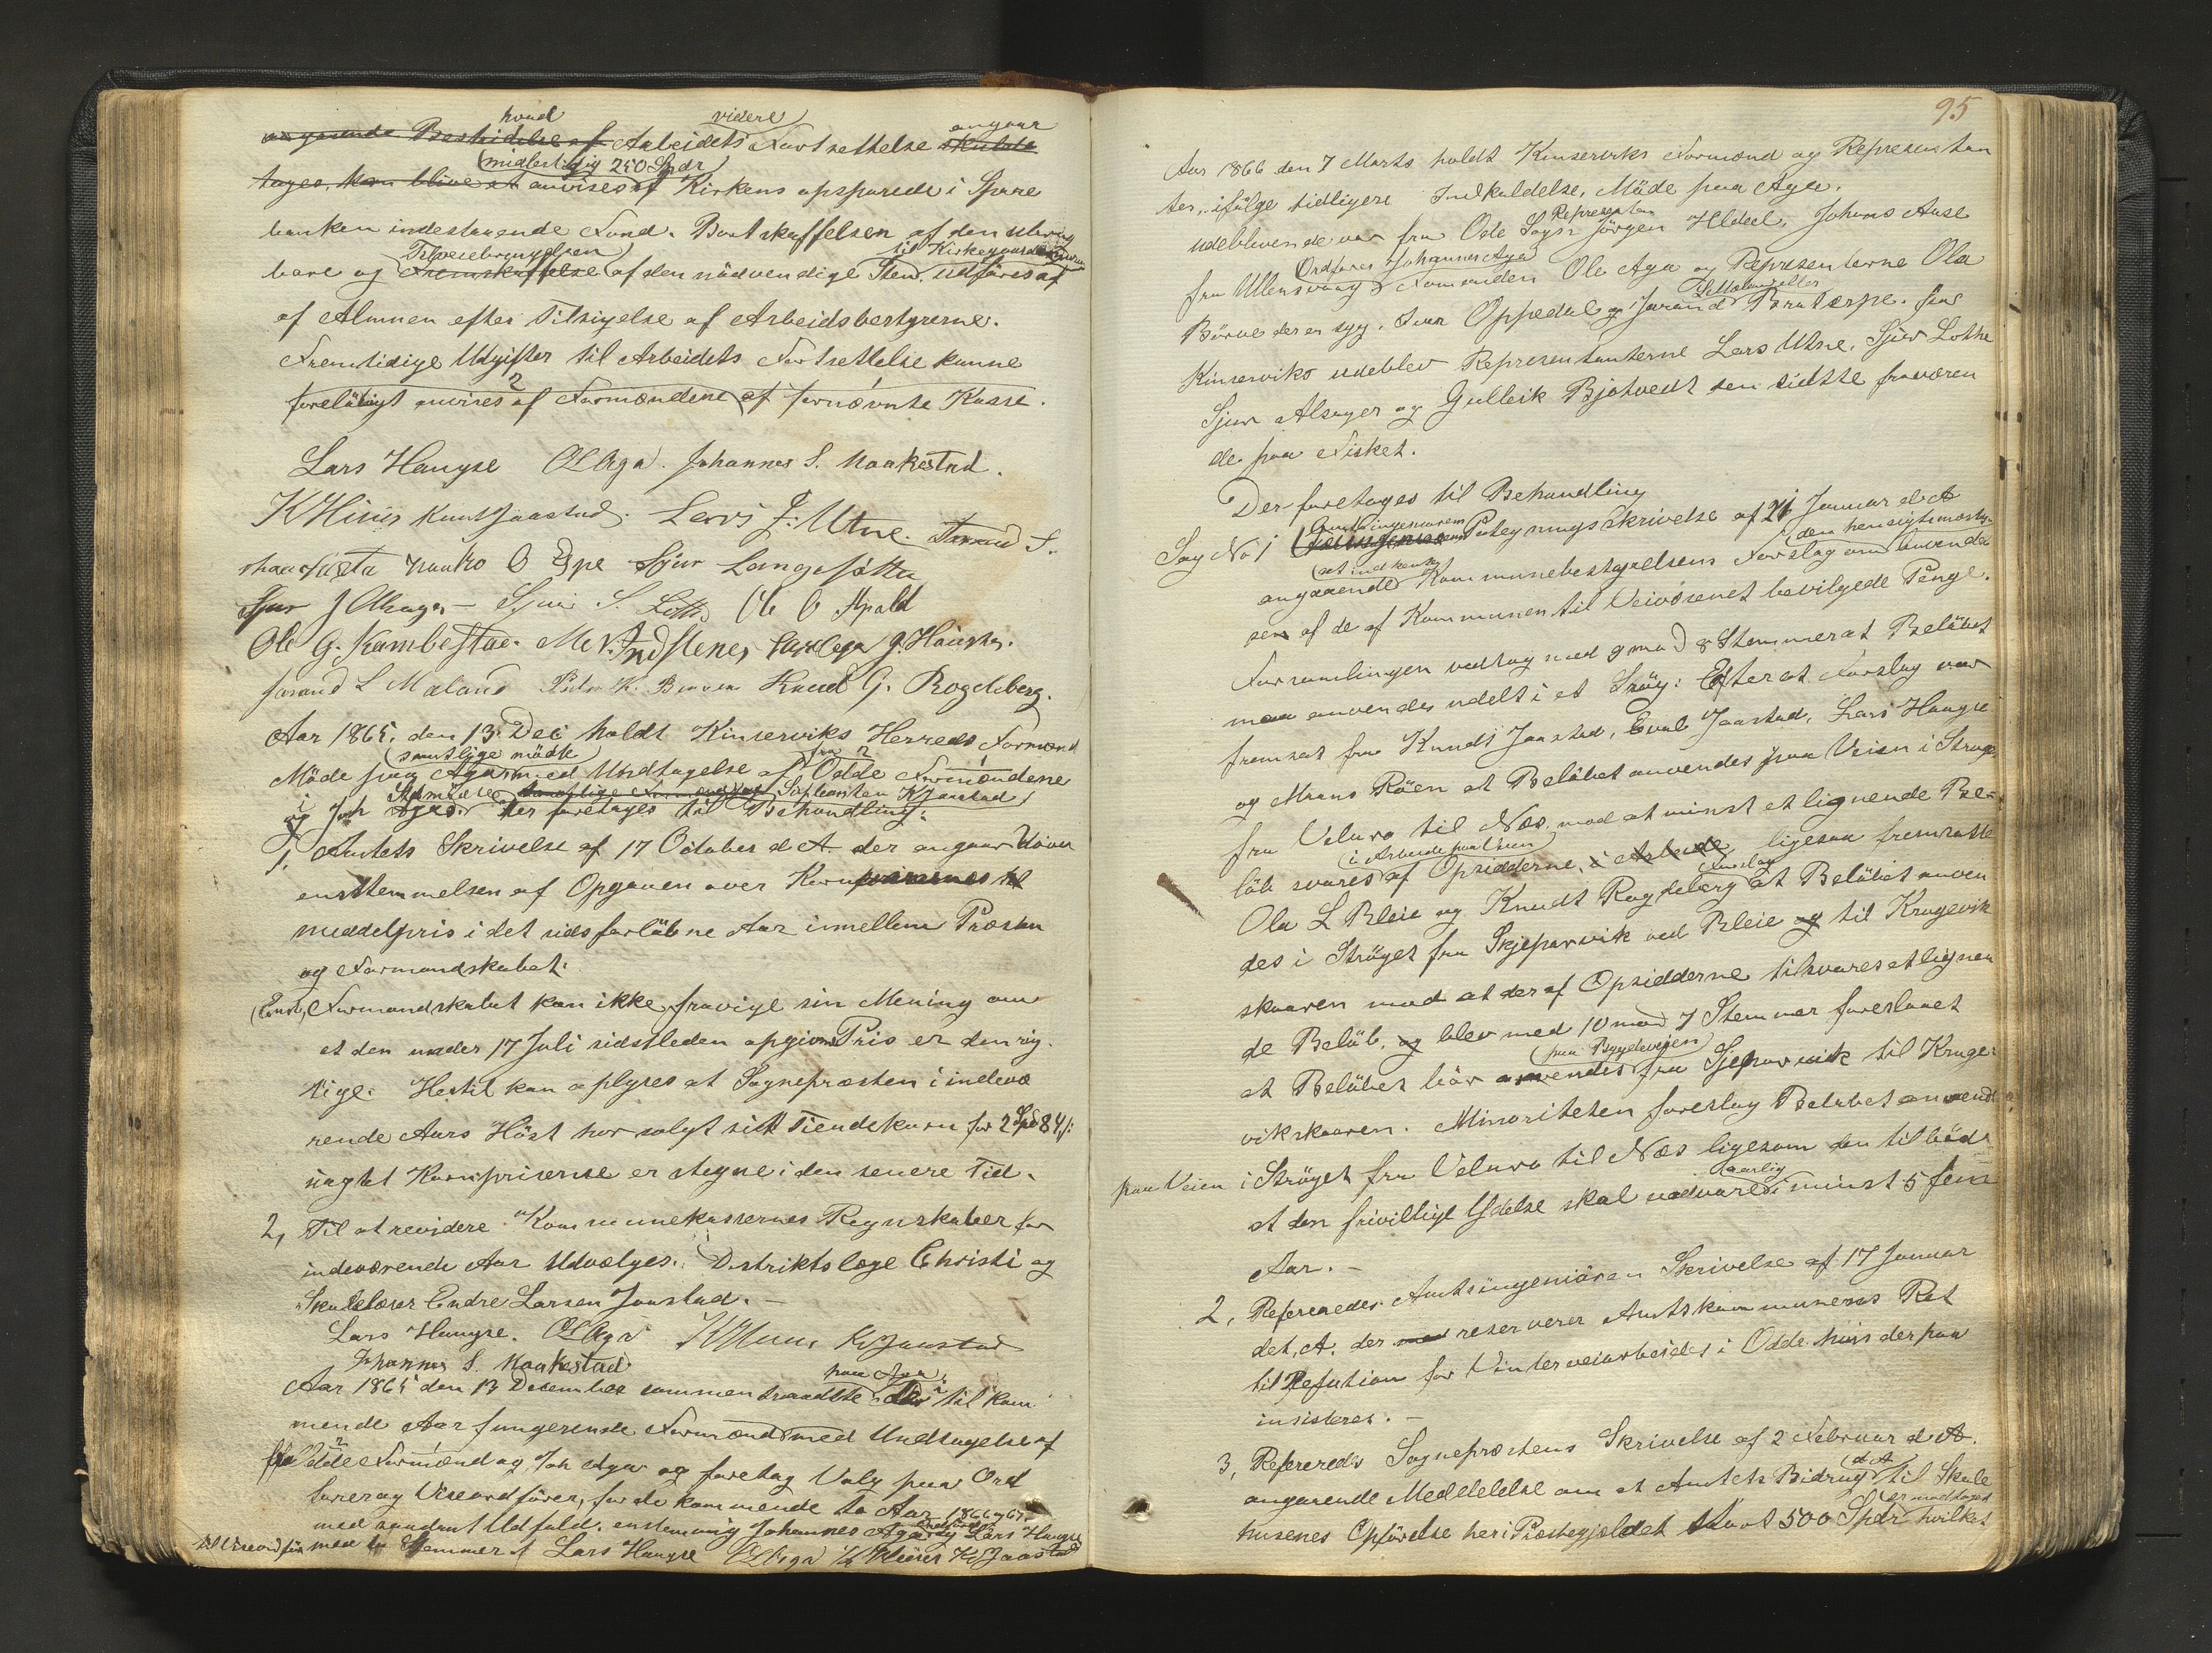 hvad videre angaar
angaaende Bestridelse af Arbeidets Fortsættelse skulde
(midlertidig 250 Spdr)
tages, kan blive at anvises af Kirkens opsparede i Spare
banken indestaaende Fond. Bortskaffelsen af den ubrug
Tilveiebringelsen til Kirkegaards
bare og Fremskaffelse af den nødvendige Steen udføres af
af Almuen efter Tilsigelse af Arbeidsbestyrerne.
Fremtidige Udgifter til Arbeidets Fortsættelse kunne
foreløbigt anvises af Formændene af fornævnte Kasse.
Lars Haugse OL Aga. Johannes S. Maakestad.
K Hiiús Knut Jaastad. Lars J: Utne. S.
O Espe Sjur Langesæter
Sjur J Alsager - Sjur S. Lotte Ole O Apald
Ole G. Kambestae. M Indstenes g. Haústs.
Jorand L Maland Peder K. Knud G. Rogdeberg.
Aar 1865, den 13 Dec holdt Kinserviks Herreds Formænd
(samtlige mødte) fra
Møde paa Aga med Undtagelse af Odde Formændene
Suplianten K Jaastad
og Joh Aga. der foretages til Behandling:
1, Amtets Skrivelse af 17 October d. A. der angaar Uover
ensstemmelsen af Opgaven over Kornprisernes
meddelpris i det sidsforløbne Aar imellem Præsten
og Formandskabet.
(Enst, Formandskabet kan ikke fravige sin Mening om
at den under 17 Juli sidstleden opgivne Pris er den rig-
tige. Hertil kan oplyses at Sognepræsten i indevæ
rende Aars Høst har solgt sitt Tiendekorn for 2 Spd 84 s:
uagtet Kornpriserne er stegne i den senere Tid.
2, Til at revidere Kommunekassernes Regnskaber for
indeværende Aar Udvælges: Distriktslæge Christi og
Skolelærer Endre Larsen Jaastad. -
Lars Hauge. OL Aga K Hiiús K Jaastad
Johannes S. Maakestad
paa Aga
Aar 1865 den 13 December sammentraadte de i til kom
mende Aar fungerende Formænd med Undtagelse af
fra Odde Formænd og Joh Aga og foretog Valg paa Ord
fører og Viseordfører, for de kommende to Aar 1866 og 67.
med saadant Udfald. enstemmig Johannes Aga Ordfører og Lars Hauge
til Viseordfører med Stemmer Lars Hauge OL Aga K Hiiús K Jaastad
95
Aar 1866 den 7 Marts holdt Kinserviks Formænd og Represæntan
ter, ifølge tidligere Indkaldelse, Møde paa Aga.
Representan
Udeblivende var fra Odde Sogn Jørgen Hildal, Johans Aase
Ordfører Johannes Aga
fra Ullensvang Formanden Ole Aga og Representerne Ola
Børve der er syg, Ivar Oppedal og Jorand Bratespe. fra
Kinserviks udeblev Representanterne Lars Utne, Sjur Lothe
Sjur Alsager og Gulleik Bjotvedt den sidste fraværen
de paa Fisket.
Der foretages til Behandling
Sag No 1 Amtsingeniørens Paategningsskrivelse af 24 Januar d. A
(den hensigtsmæs
angaaende Kommunebestyrelsens Forslag om Anvendel
sen af de af Kommunen til Veivæsenet bevilgede Penge.
Forsamlingen vedtog med 9 mod 8 Stemmer at Beløbet
maa anvendes udelt i et Strøg: Efter at Forslag var
fremsat fra Knud J Jaastad, Endre Jaastad, Lars Hauge
og Maans Røen at Beløbet anvendes paa Veien i Strøge
fra Velura til Næs, mod at minst et lignende Be-
(i Arbeide paa Veien)
løb svares af Opsidderne, i Arbeide, ligesaa fremsatte
Forslag
Ola L Bleie og Knudt Rogdeberg at Beløbet anven
des i Strøget fra Skjeparvik ved Bleie og til Kragevik
skaaren mod at der af Opsidderne tilsvares et lignen
de Beløb, og blev med 10 mod 7 Stemmer foreslaaet
(paa Bygdeveien)
at Beløbet bør anvendes fra Sjeparvik til Krage-
vikskaaren. Minoriteten foreslog Beløbet anvendt
paa Veien i Strøget fra Velura til Næs ligesom den tilbød
aarlig
at den frivillige Ydelse skal vedvare i minst 5 fem
Aar. -
2, Refereredes Amtsingeniøren Skrivelse af 17 Januar
det. A. der reserverer Amtskommunens Ret
til Refution for Vinterveiarbeidet i Odde. hvis derpaa
insisteres. -
3, Refereredes Sognepræstens Skrivelse af 2 Februar d. A.
d A
angaaende Meddelelse om at Amtets Bidrag til Skole
er modtaget
husenes Opførelse her i Præstegjeldet stort 500 Spdr hvilket